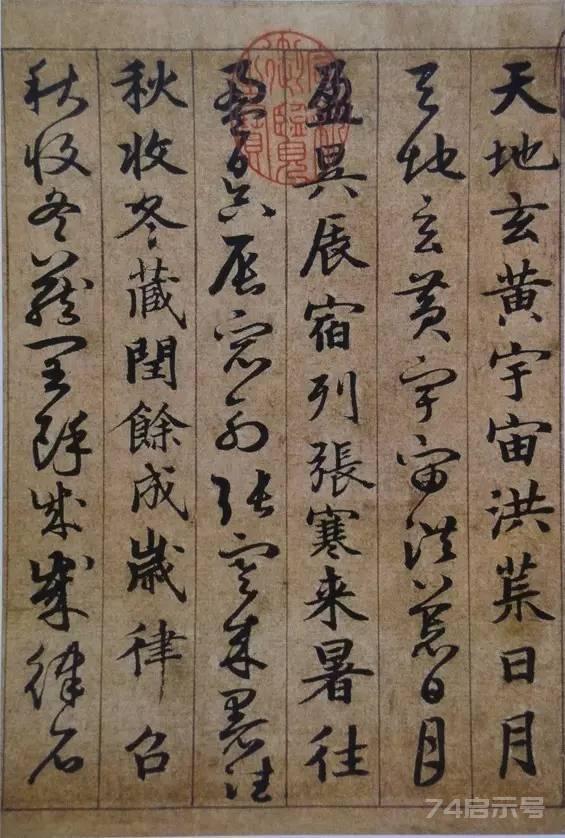 天地玄黄宇宙洪荒日月
天地玄黄宇宙洪荒日月
盈昃辰宿列張寒来暑往
盈昃辰宿列張寒来暑往
秋收冬藏閏餘成歲律召
秋收冬藏閏餘成歲律召
74启示号